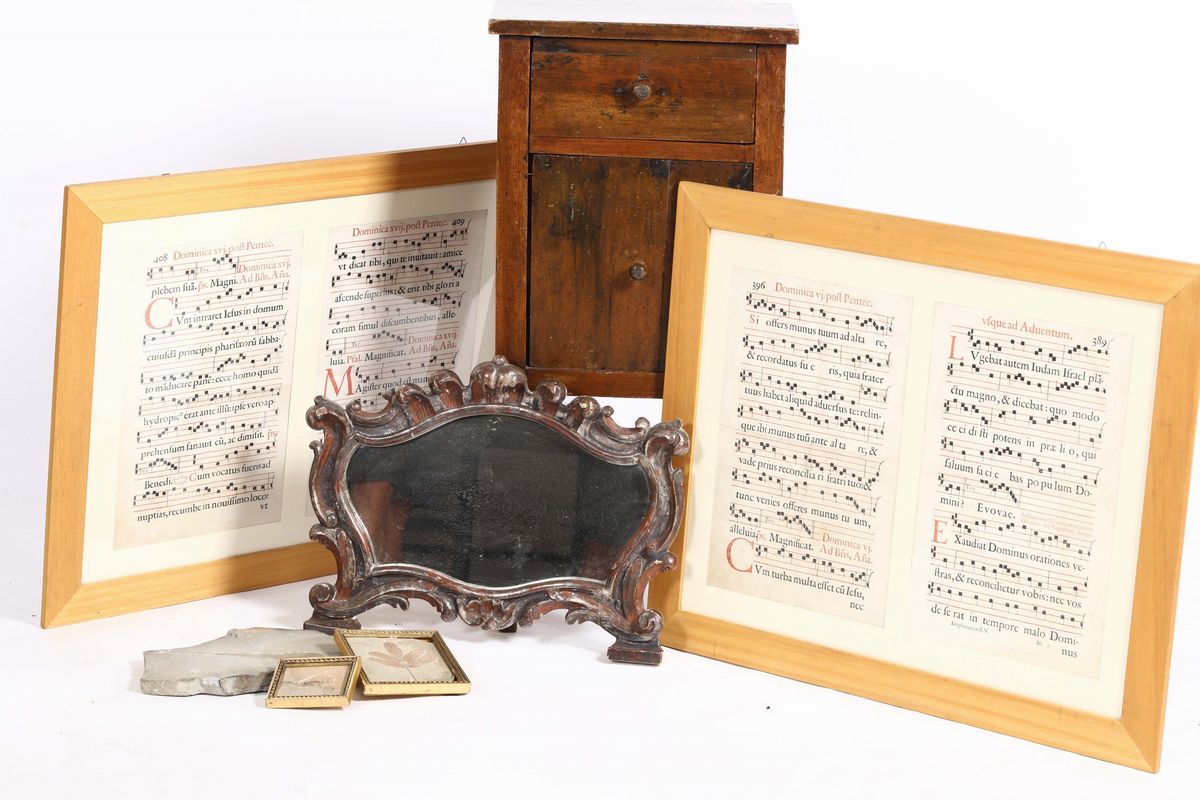 408 Dominica xvij. post Pentec.
Dominica xvij.
plebem suã. ps. Magni. Ad Bñs, Aña.
CVm intraret Iesus in domum
cuiusdã principis pharisæorũ sabba-
to mãducare panẽ: ecce homo quidã
hydropicꝰ erat ante illũ: ipse vero ap-
prehensum sanauit eũ, ac dimisit. ps
Benedi. Cum vocatus fueris ad
nuptias, recumbe in nouissimo loco:
vt
Dominica xvij. post Pentec. 409
vt dicat tibi, qui te inuitauit: amice
ascende superius: & erit tibi glori a
coram simul discumbentibus, alle-
Dominica xvij.
luia. Psal. Magnificat. Ad Bñs, Aña.
MAgister quod est man
396 Dominica vj. post Pentec.
Si offers munus tuum ad alta re,
& recordatus fu e ris, quia frater
tuus habet aliquid aduersus te: relin-
que ibi munus tuũ ante al ta re, &
vade prius reconcilia ri fratri tuo: &
tunc venies offeres munus tu um,
alleluia. ps. Magnificat. Dominica vj.
Ad Bñs, Aña.
CVm turba multa esset cũ Iesu,
nec
vsque ad Aduentum. 389
LVgebat autem Iudam Israel plã-
ctu magno, & dicebat: quo modo
ce ci di sti potens in præ li o, qui
saluum fa ci e bas po pu lum Do-
mini? Evovae.
EXaudiat Dominus orationes ve-
stras, & reconcilietur vobis: nec vos
de se rat in tempore malo Domi-
nus